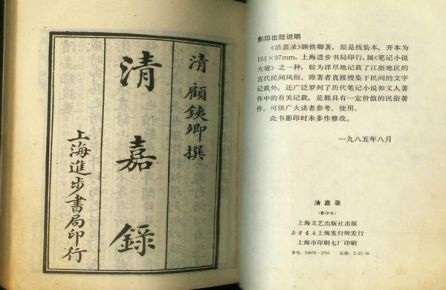 清 顧鉄卿撰
清嘉錄
上海進步書局印行
影印出版说明
《清嘉录》顾铁卿著。原是线装本，开本为
151×97mm，上海进步书局印行，属《笔记小说
大观》之一种，较为详尽地记载了江浙地区的
古代民间风俗。除著者直接搜集于民间的文字
记载外，还广泛罗列了历代笔记小说和文人著
作中的有关记载，是部具有一定价值的民俗著
作。可供广大读者参考、使用。
此书影印时未多作修改。
一九八五年八月
清嘉录
(影印本)
上海文艺出版社出版
新华书店上海发行所发行
上海市印刷七厂印刷